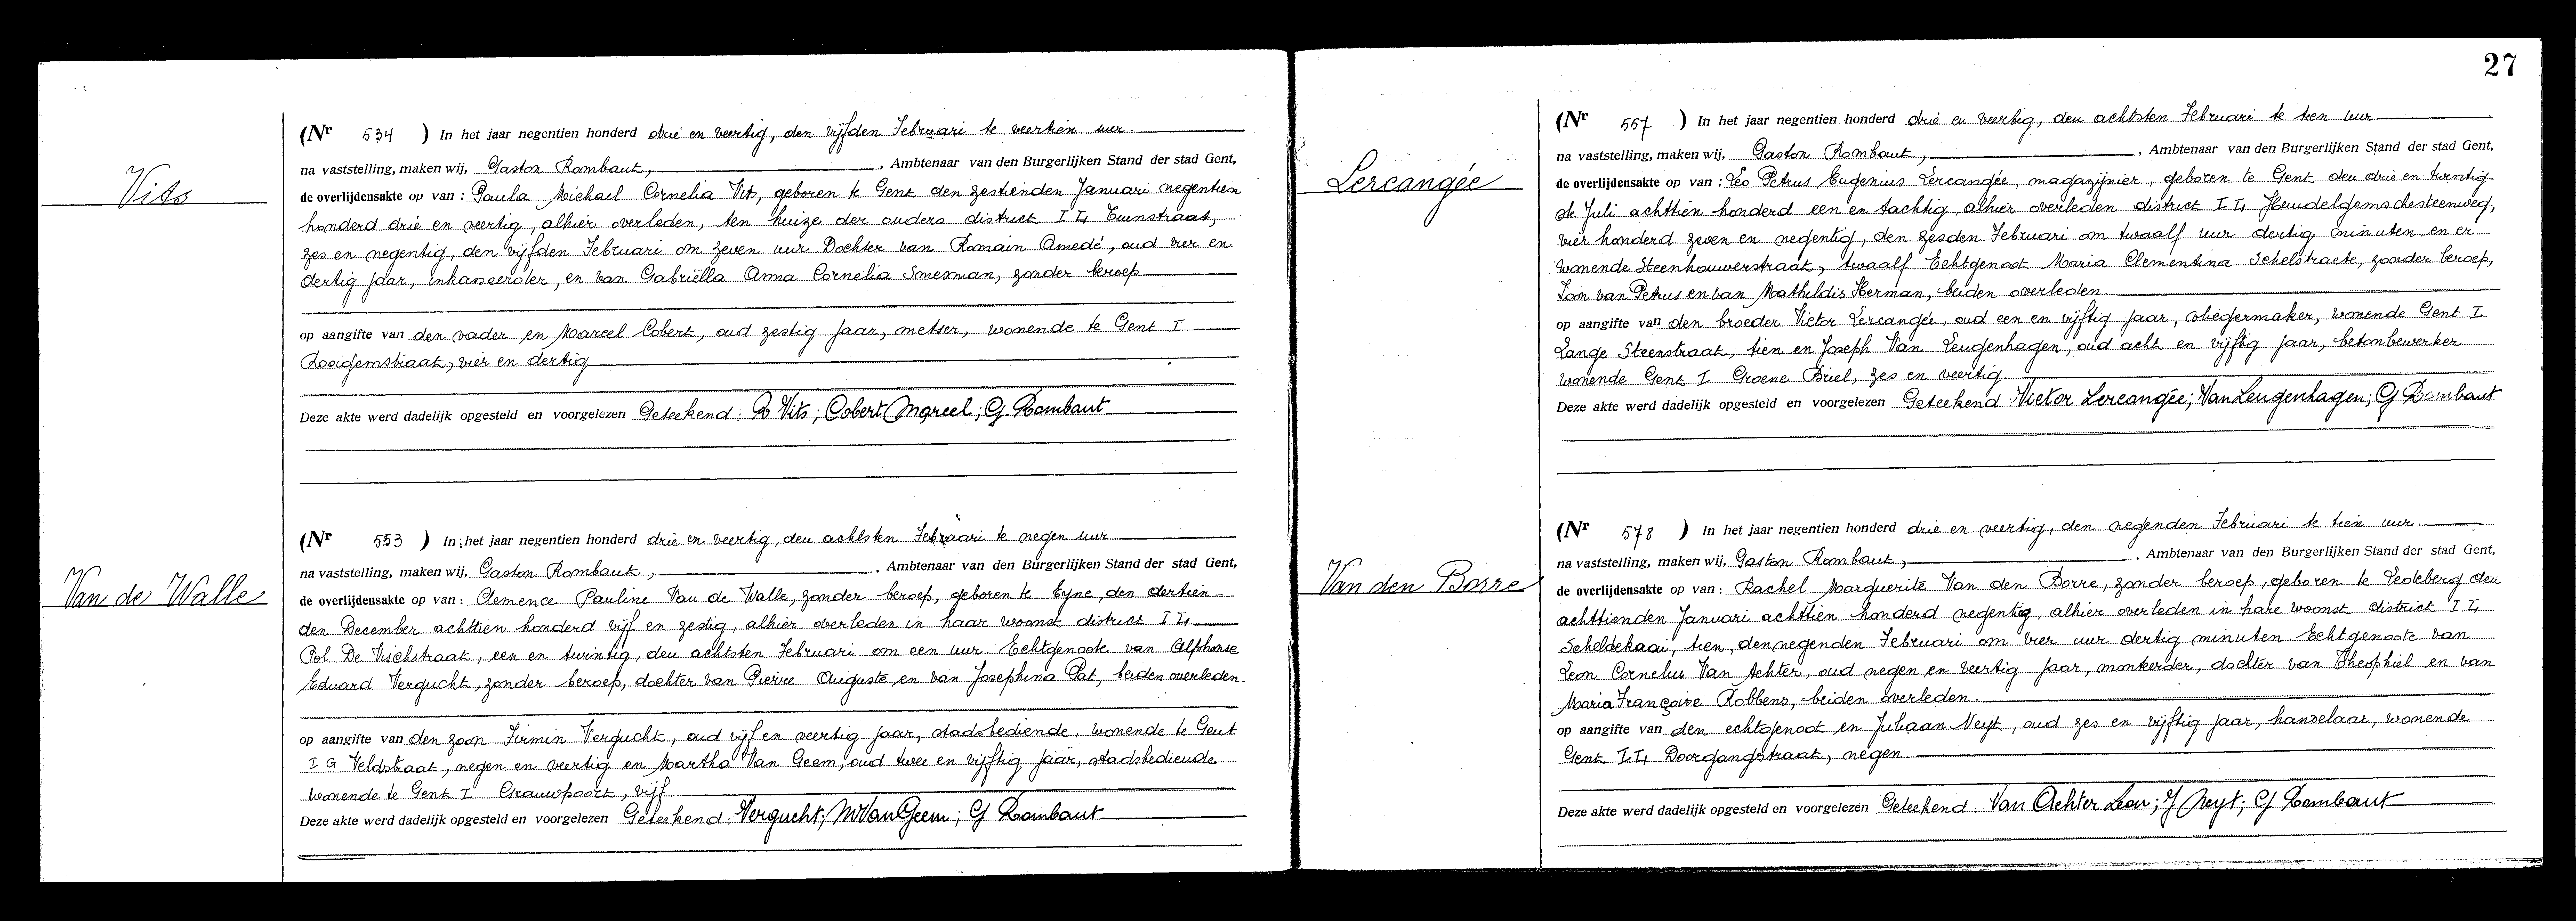 Vits
(Nr 534 ) In het jaar negentien honderd drie en veertig, den vijfden Februari te veertien uur.
na vaststelling, maken wij, Gaston Rombaut, , Ambtenaar van den Burgerlijken Stand der stad Gent,
de overlijdensakte op van : Paula Michael Cornelia Vits, geboren te Gent den zestienden Januari negentien
honderd drie en veertig, alhier overleden, ten huize der ouders district II, Tuinstraat,
zes en negentig, den vijfden Februari om zeven uur Dochter van Romain Amedé, oud vier en
dertig jaar, inkasseerder, en van Gabriëlla Anna Cornelia Smesman, zonder beroep
op aangifte van den vader en Marcel Cobert, oud zestig jaar, metser, wonende te Gent I
Rooigemstraat, vier en dertig
Deze akte werd dadelijk opgesteld en voorgelezen Geteekend: R Vits; Cobert Marcel; G Rombaut
Van de Walle
(Nr 553 ) In het jaar negentien honderd drie en veertig, den achtsten Februari te negen uur
na vaststelling, maken wij, Gaston Rombaut, , Ambtenaar van den Burgerlijken Stand der stad Gent,
de overlijdensakte op van : Clemence Pauline Van de Walle, zonder beroep, geboren te Eyne, den dertien-
den December achttien honderd vijf en zestig, alhier overleden in haar woonst district II,
Pol De Vischstraat, een en twintig, den achtsten Februari om een uur. Echtgenoote van Alphonse
Eduard Vergucht, zonder beroep, dochter van Pierre Auguste en van Josephina Pat, beiden overleden.
op aangifte van den zoon Firmin Vergucht, oud vijf en veertig jaar, stadsbediende, wonende te Gent
I G Veldstraat, negen en veertig en Martha Van Geem, oud twee en vijftig jaar, stadsbediende
wonende te Gent I Grauwpoort, vijf
Deze akte werd dadelijk opgesteld en voorgelezen Geteekend: Vergucht; M Van Geem; G Rombaut
27
Lercangée
(Nr 557 ) In het jaar negentien honderd drie en veertig, den achtsten Februari te tien uur
na vaststelling, maken wij, Gaston Rombaut, , Ambtenaar van den Burgerlijken Stand der stad Gent,
de overlijdensakte op van : Leo Petrus Eugenius Lercangée, magazijnier, geboren te Gent den drie en twintig-
ste Juli achttien honderd een en tachtig, alhier overleden district II, Heudelgemschesteenweg,
vier honderd zeven en negentig, den zesden Februari om twaalf uur dertig minuten en er
wonende Steenhouwerstraat, twaalf Echtgenoot Maria Clementina Schelstraete, zonder beroep,
Zoon van Petrus en van Mathildis Herman, beiden overleden
op aangifte van den broeder Victor Lercangée, oud een en vijftig jaar, vliegermaker, wonende Gent I
Lange Steenstraat, tien en Joseph Van Leugenhagen, oud acht en vijftig jaar, betonbewerker
wonende Gent I Groene Briel, zes en veertig
Deze akte werd dadelijk opgesteld en voorgelezen Geteekend Victor Lercangée; Van Leugenhagen; G Rombaut
Van den Borre
(Nr 578 ) In het jaar negentien honderd drie en veertig, den negenden Februari te tien uur.
na vaststelling, maken wij, Gaston Rombaut, , Ambtenaar van den Burgerlijken Stand der stad Gent,
de overlijdensakte op van : Rachel Marguerite Van den Borre, zonder beroep, geboren te Ledeberg den
achttienden Januari achttien honderd negentig, alhier overleden in hare woonst district II,
Scheldekaai, tien, den negenden Februari om vier uur dertig minuten Echtgenoote van
Leon Cornelus Van Achter, oud negen en veertig jaar, monteerder, dochter van Theophiel en van
Maria Françoise Robbens, beiden overleden.
op aangifte van den echtgenoot en Juliaan Neyt, oud zes en vijftig jaar, handelaar, wonende
Gent II, Doorgangstraat, negen
Deze akte werd dadelijk opgesteld en voorgelezen Geteekend: Van Achter Leon; J Neyt; G Rombaut